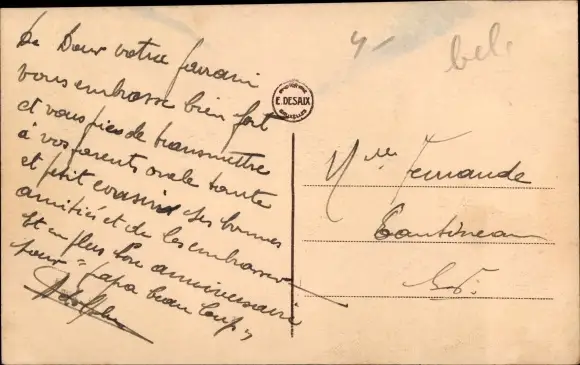 De Dour votre parrain
vous embrasse bien fort
et vous prie de transmettre
à vos parents oncle tante
et petit cousin ses bonnes
amitiés et de les embrasser
Et en plus bon anniversaire
pour "Papa beaucoup"
Adolphe
4-
bel.
E. DESAIX
BRUXELLES
Mlle Fernande